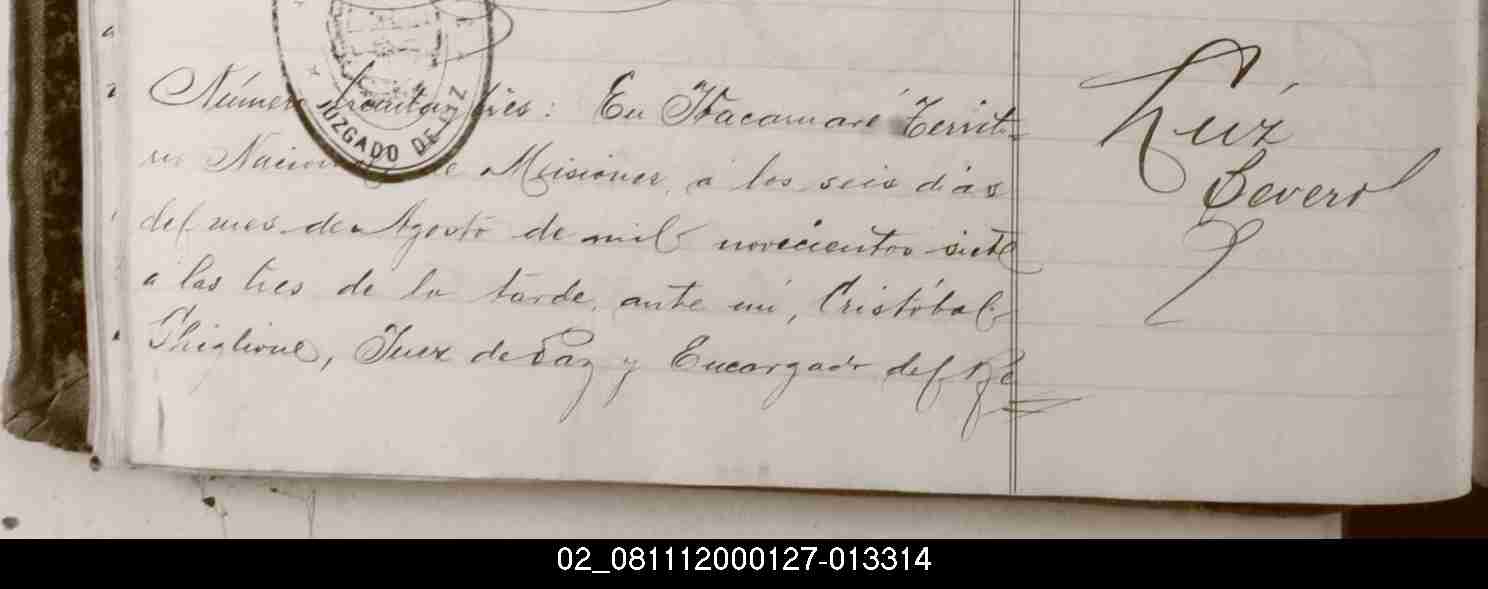 Número treinta tres: En Itacaruaré Territo-
rio Nacional de Misiones, a los seis días
del mes de Agosto de mil novecientos siete
a las tres de la tarde, ante mi, Cristóbal
Ghiglione, Juez de Paz y Encargado del Re
Severo
JUZGADO DE PAZ
02_081112000127-013314